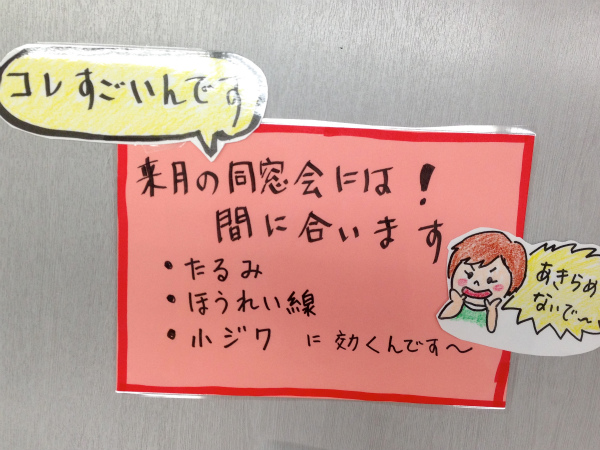 コレすごいんです
来月の同窓会には!
間に合います
・たるみ
・ほうれい線
・小ジワ に効くんです〜
あきらめ
ないで〜